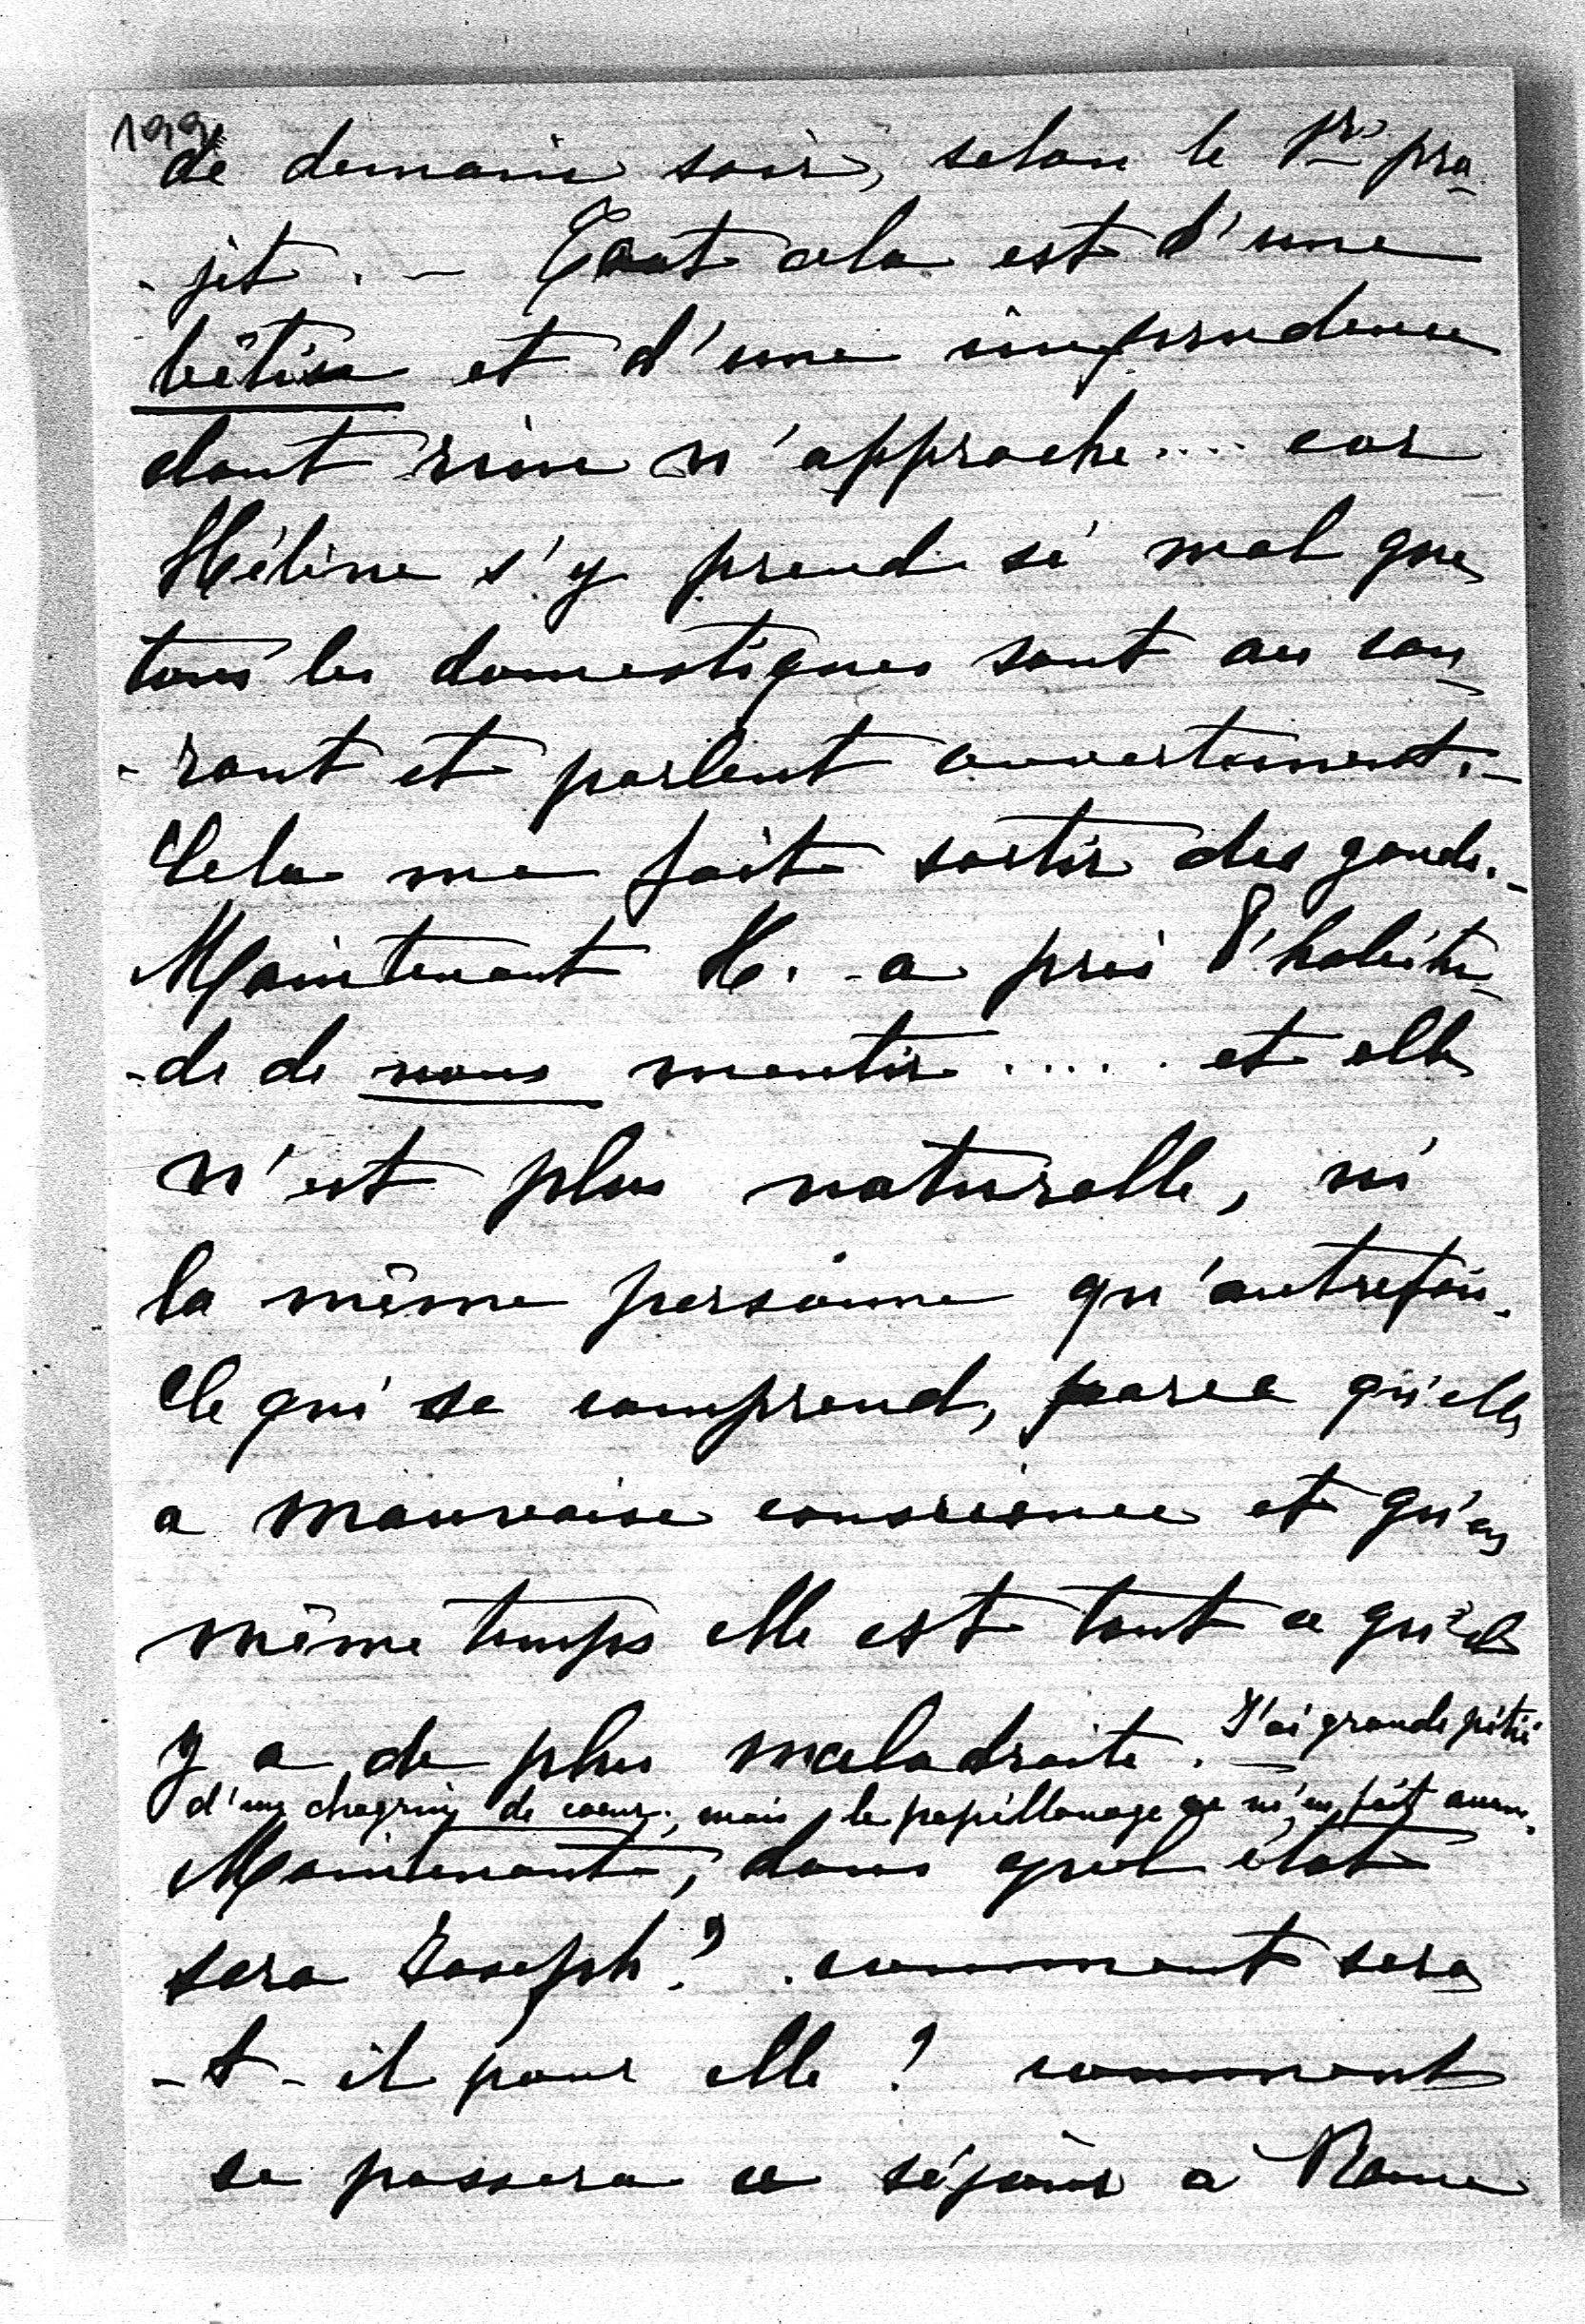 199
de demain soir, selon le 1er pro-
-jet. - Tout cela est d'une
bêtise et d'une imprudence
dont rien n'approche.... car
Hélène s'y prend si mal que
tous les domestiques sont au cou-
-rant et parlent ouvertement. -
Cela me fait sortir des gonds. -
Maintenant H. a pris l'habitu-
-de de nous mentir ..... et elle
n'est plus naturelle, ni
la même personne qu'autrefois.
Ce qui se comprend, parce qu'elle
a mauvaise conscience et qu'en
même temps elle est tout ce qu'il
y a de plus maladroite. - J'ai grande pitié
d'un chagrin de coeur, mais le papillonage ne m'en fait aucune.
Maintenant, dans quel état
sera Joseph? comment sera
-t-il pour elle? comment
se passera ce séjour à Rome